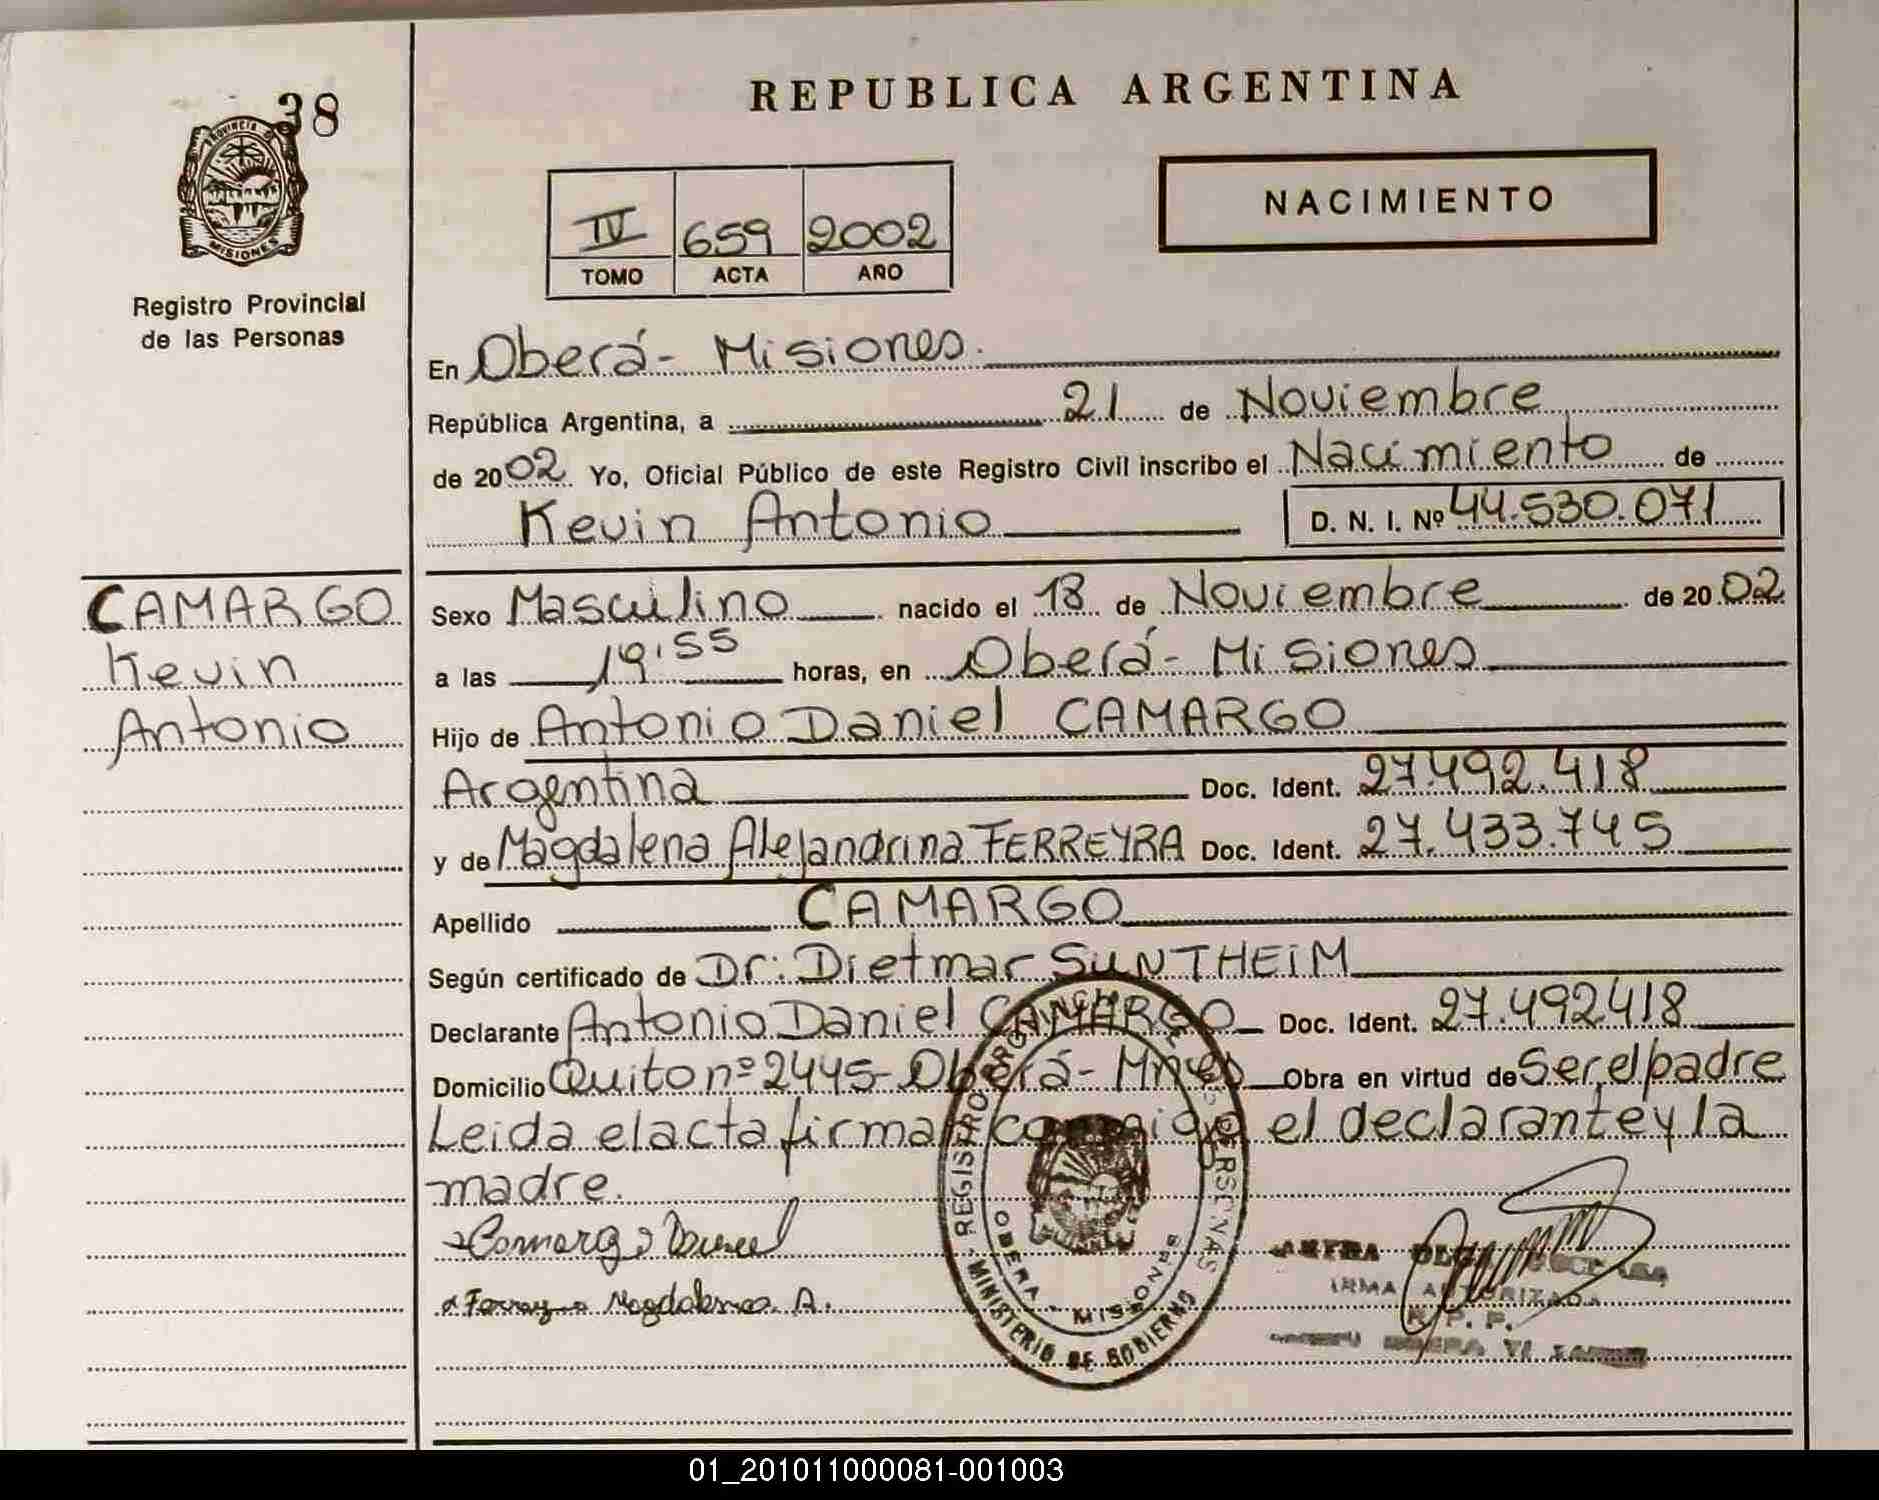 38
PROVINCIA D
MISIONES
Registro Provincial
de las Personas
REPUBLICA ARGENTINA
IV 659 2002
TOMO ACTA AÑO
NACIMIENTO
En Oberá - Misiones.
República Argentina, a 21 de Noviembre
de 2002 Yo, Oficial Público de este Registro Civil inscribo el Nacimiento de
Kevin Antonio D. N. I. Nº 44.530.071
CAMARGO
Kevin
Antonio
Sexo Masculino nacido el 18 de Noviembre de 2002
a las 19:55 horas, en Oberá - Misiones
Hijo de Antonio Daniel CAMARGO
Argentina Doc. Ident. 27.492.418
y de Magdalena Alejandrina FERREYRA Doc. Ident. 27.433.745
Apellido CAMARGO
Según certificado de Dr: Dietmar SUNTHEIM
Declarante Antonio Daniel CAMARGO Doc. Ident. 27.492418
Domicilio Quito nº 2445 - Oberá - Mnes Obra en virtud de Ser el padre
Leida el acta firman conmigo el declarante y la
madre.
Camargo Daniel
Ferreyra Magdalena A.
REGISTRO PERSONAS
OBERA - MISIONES
MINISTERIO DE GOBIERNO
FIRMA AUTORIZADA
R. P. P.
01_201011000081-001003